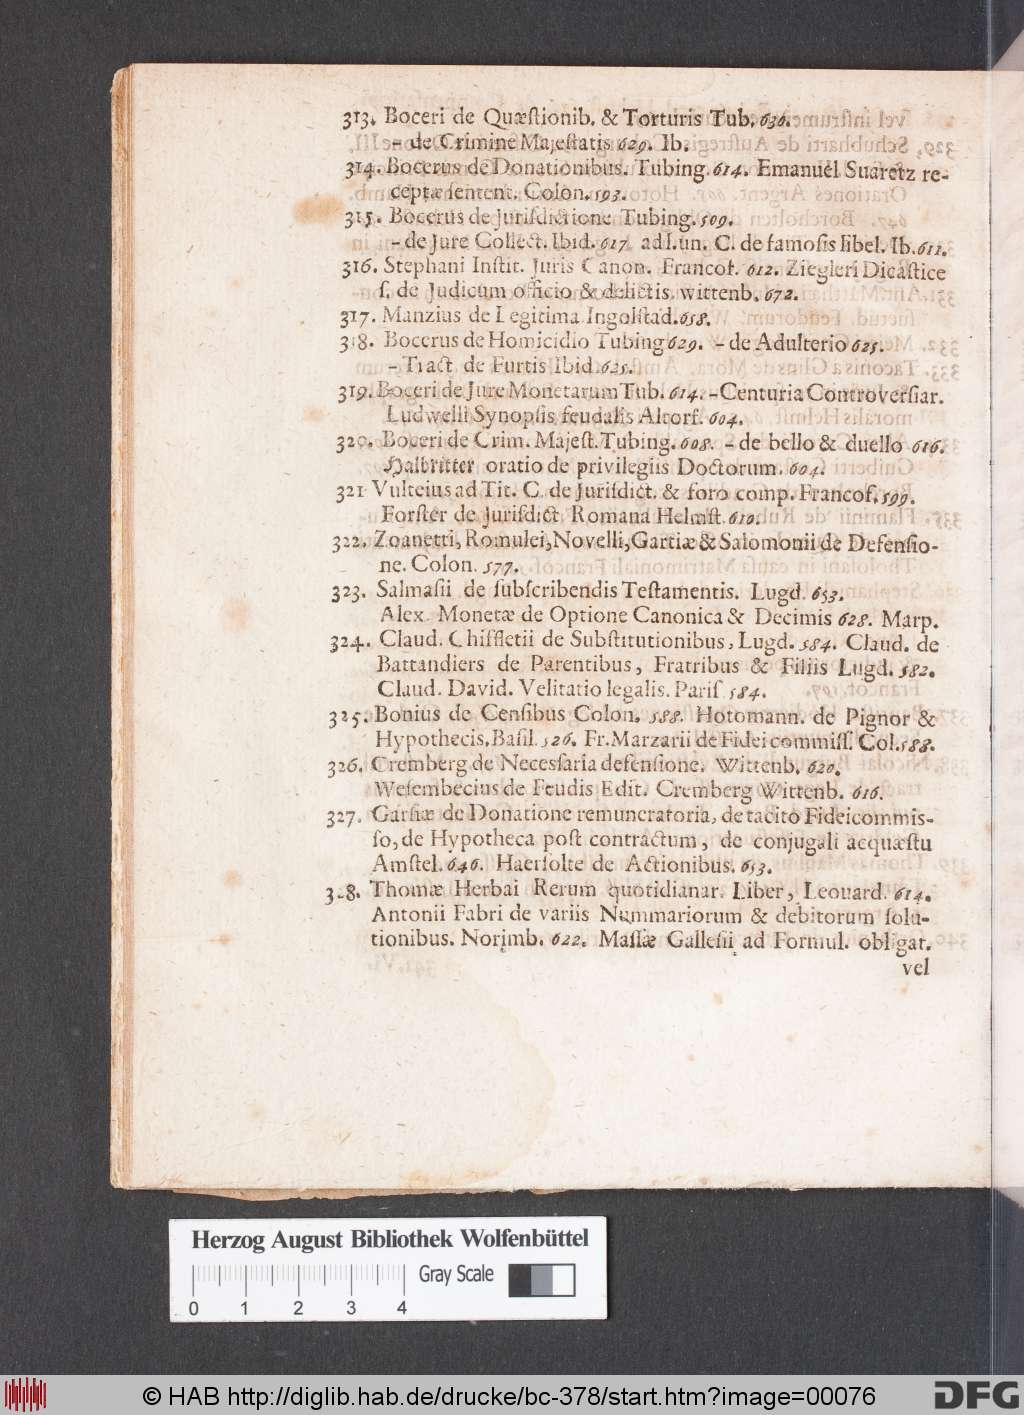 313. Boceri de Quæſtionib. & Torturis Tub. 636.
- de Crimine Majeſtatis 629. Ib.
314. Bocerus de Donationibus. Tubing. 614. Emanuel Suaretz re-
ceptæ ſentent. Colon. 593.
315. Bocerus de Jurisdictione Tubing. 509.
- de Jure Collect. Ibid. 617. ad l. un. C. de famoſis libel. Ib. 611.
316. Stephani Inſtit. Juris Canon. Francof. 612. Ziegleri Dicaſtice
ſ. de Judicum officio & delictis. wittenb. 672.
317. Manzius de Legitima Ingolſtad. 658.
318. Bocerus de Homicidio Tubing 629. - de Adulterio 625.
- Tract de Furtis Ibid. 625.
319. Boceri de Jure Monetarum Tub. 614. - Centuria Controverſiar.
Ludwelli Synopſis feudalis Altorf. 604.
320. Boceri de Crim. Majeſt. Tubing. 608. - de bello & duello 616.
Halbritter oratio de privilegiis Doctorum. 604.
321 Vulteius ad Tit. C. de Jurisdict. & foro comp. Francof. 599.
Forſter de Jurisdict Romana Helmſt. 610.
322. Zoanetti, Romulei, Novelli, Gartiæ & Salomonii de Defenſio-
ne. Colon. 577.
323. Salmaſii de ſubſcribendis Teſtamentis. Lugd. 653.
Alex. Monetæ de Optione Canonica & Decimis 628. Marp.
324. Claud. Chiffletii de Subſtitutionibus, Lugd. 584. Claud. de
Battandiers de Parentibus, Fratribus & Filiis Lugd. 582.
Claud. David. Velitatio legalis. Pariſ 584.
325. Bonius de Cenſibus Colon. 588. Hotomann. de Pignor &
Hypothecis. Baſil. 526. Fr. Marzarii de Fideicommiſſ. Col. 588.
326. Cremberg de Neceſſaria defenſione. Wittenb. 620.
Weſembecius de Feudis Edit. Cremberg Wittenb. 616.
327. Garſiæ de Donatione remuneratoria, de tacito Fideicommiſ-
ſo, de Hypotheca poſt contractum, de conjugali acquæſtu
Amſtel. 646. Haerſolte de Actionibus. 653.
328. Thomæ Herbai Rerum quotidianar. Liber, Leouard. 614.
Antonii Fabri de variis Nummariorum & debitorum ſolu-
tionibus. Norimb. 622. Maſſæ Galleſii ad Formul. obligat.
vel
Herzog August Bibliothek Wolfenbüttel
Gray Scale
0 1 2 3 4
© HAB http://diglib.hab.de/drucke/bc-378/start.htm?image=00076
DFG